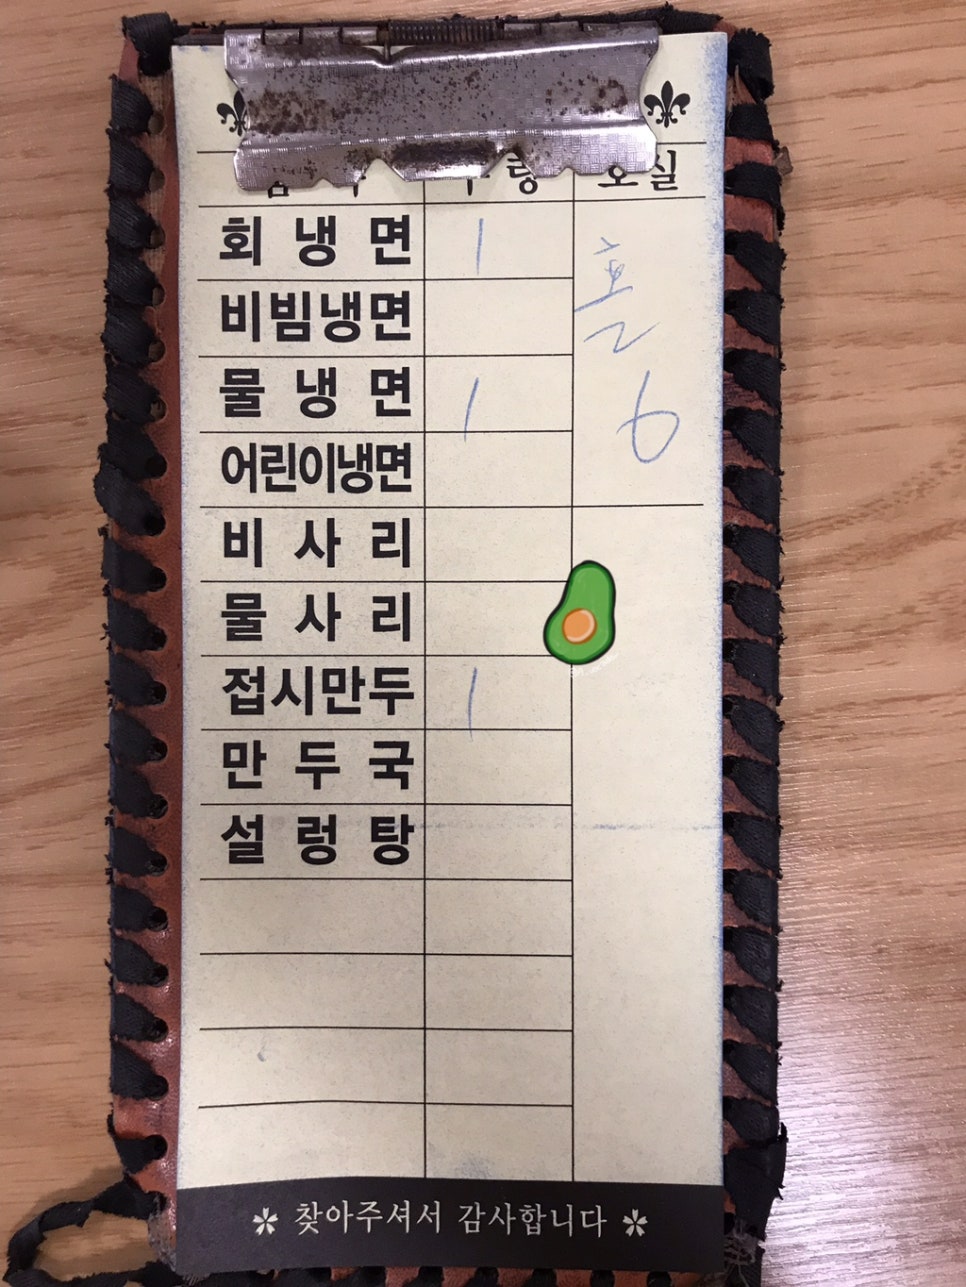 수량 호실
회 냉 면 1 홀
비빔냉면
물 냉 면 1 6
어린이냉면
비 사 리
물 사 리
접시만두 1
만 두 국
설 렁 탕
찾아주셔서 감사합니다